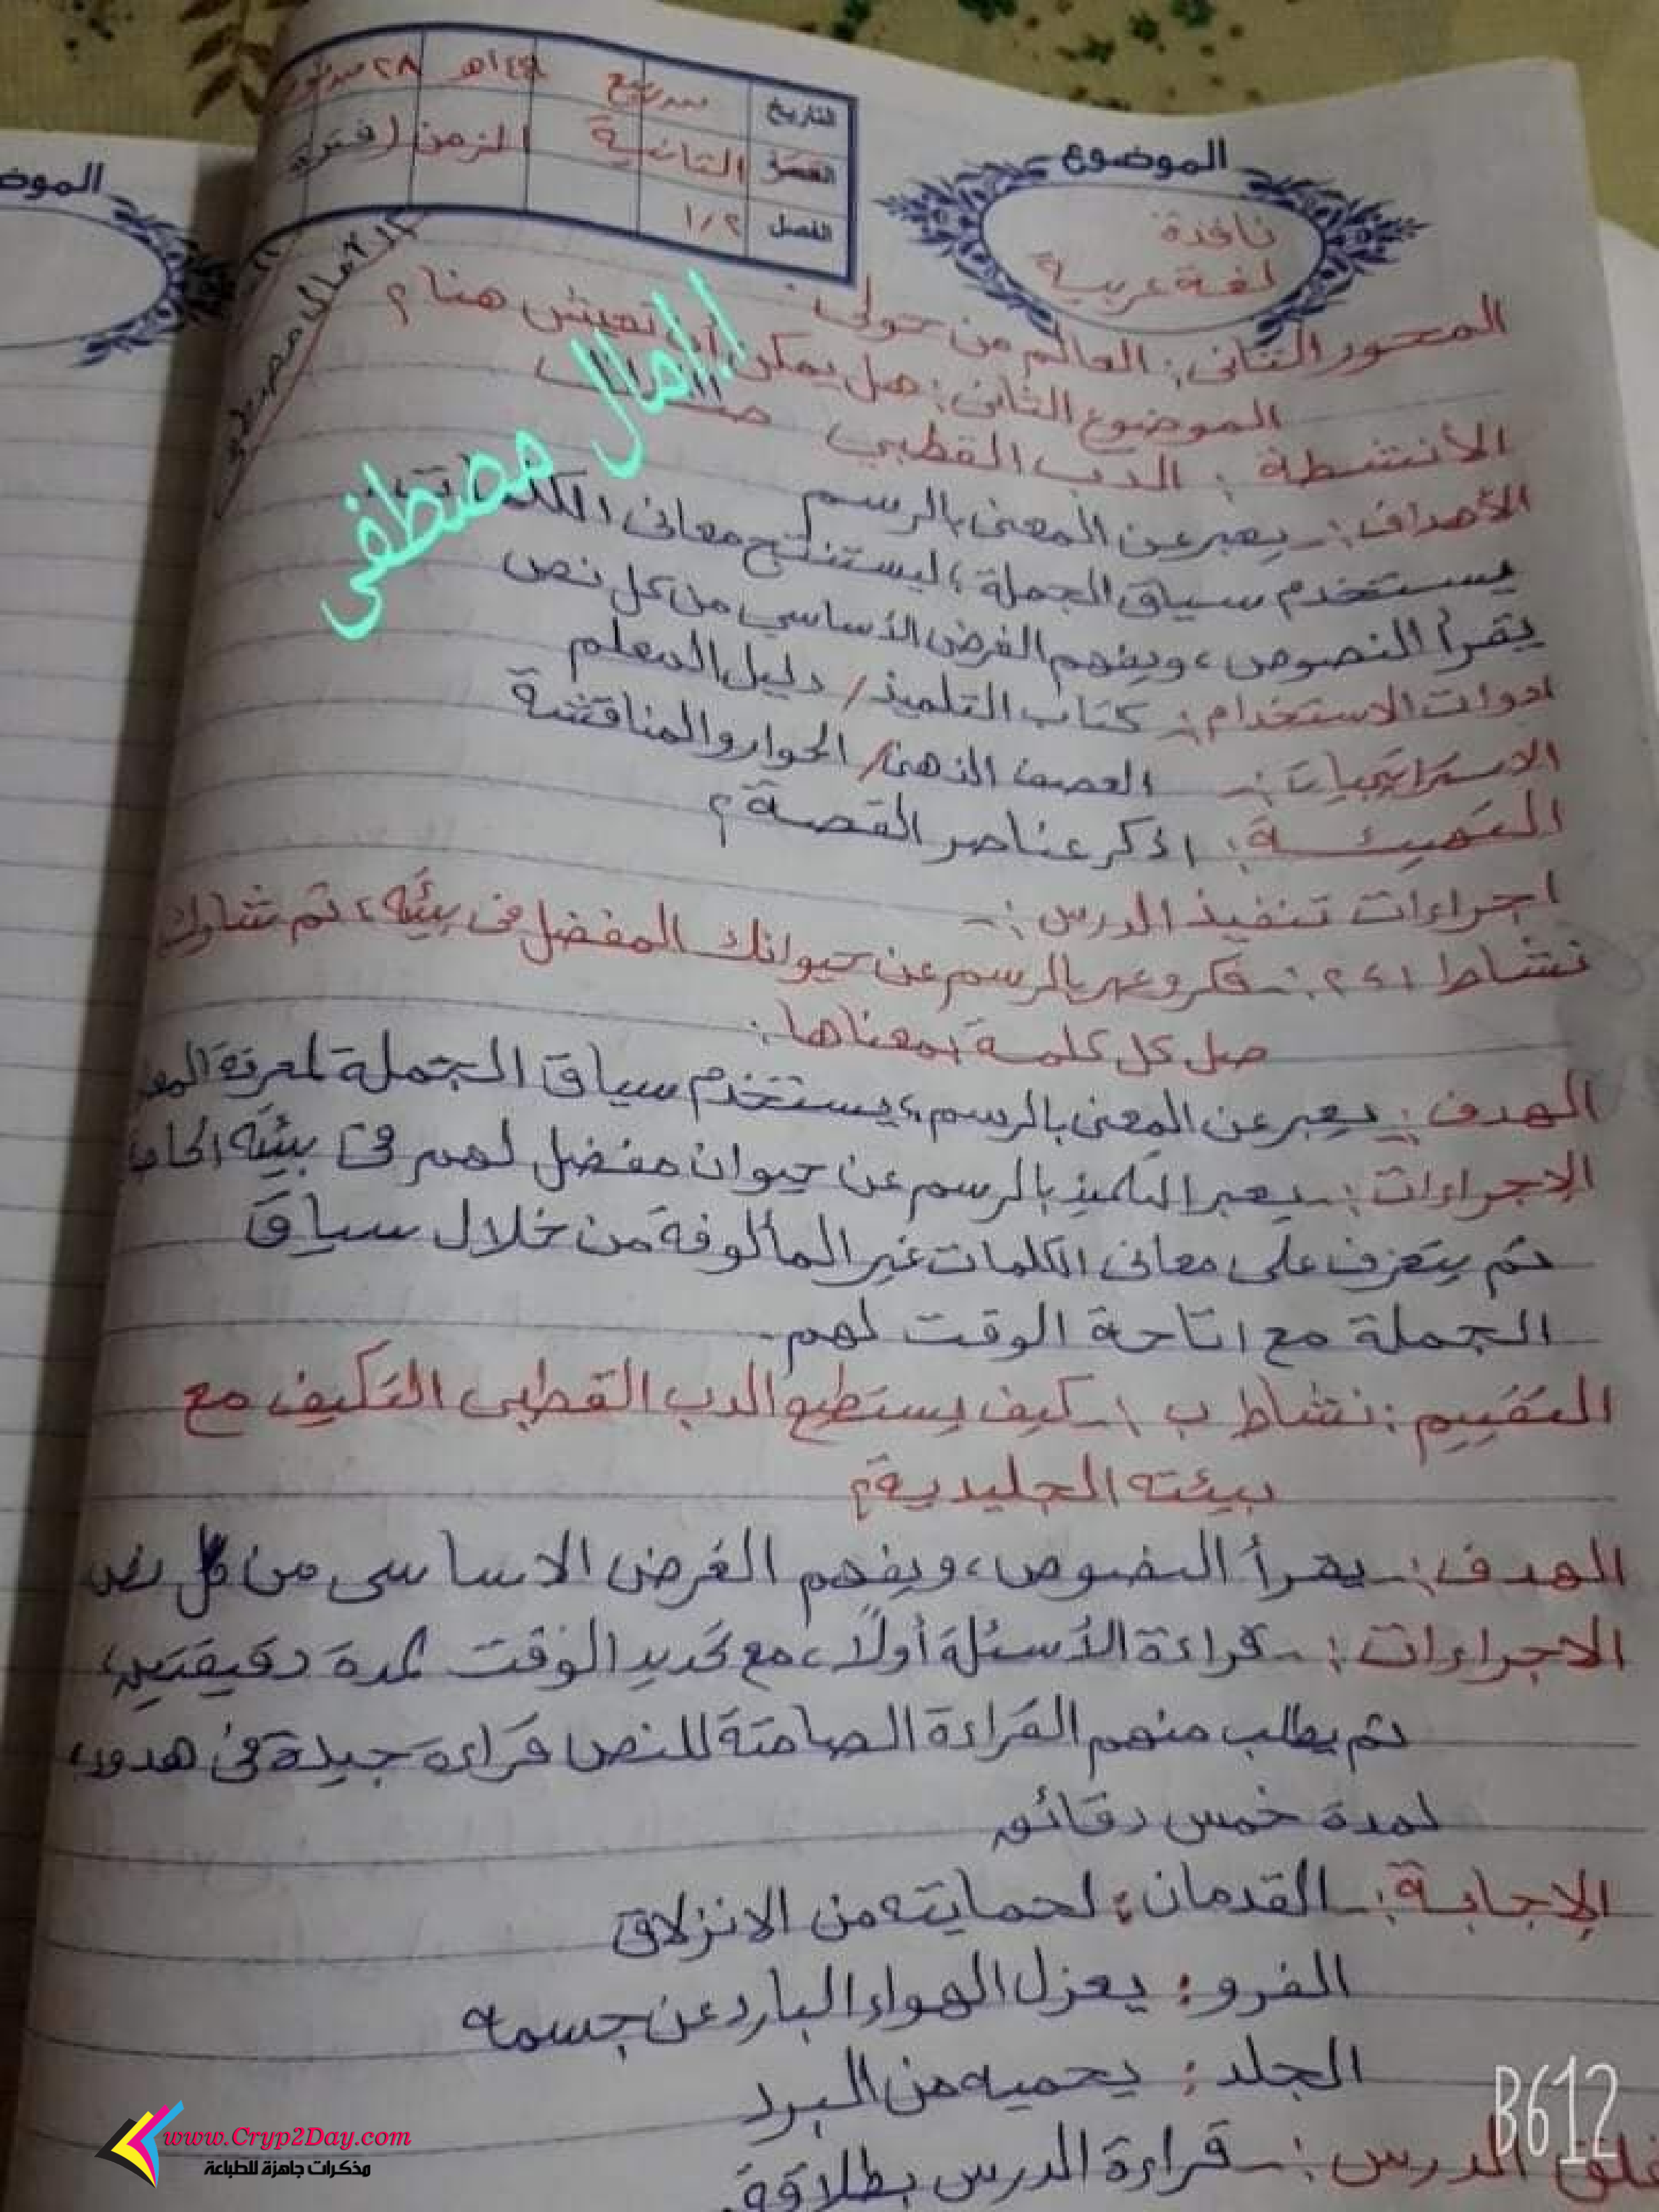 الموضوع
نافذة
لغة عربية
التاريخ
الفصل ١/٢
الثانية الزمن (فترة
المحور الثانى: العالم من حولى.
الموضوع الثانى: هل يمكن أن نعيش هنا؟
الأنشطة: الدب القطبى
الأهداف:- يعبر عن المعنى بالرسم
يستخدم سياق الجملة؛ ليستنتج معانى
يقرأ النصوص، ويفهم الغرض الأساسي من كل نص
ادوات الاستخدام:- كتاب التلميذ/ دليل المعلم
الاستراتيجيات:- العصف الذهنى/ الحوار والمناقشة
التهيئة: اذكر عناصر القصة؟
اجراءات تنفيذ الدرس:-
نشاط ١، ٢:- فكر وعبر بالرسم عن حيوانك المفضل فى بيئته، ثم شارك
صل كل كلمة بمعناها:
الهدف:- يعبر عن المعنى بالرسم، يستخدم سياق الجملة لمعرفة
الاجراءات:- يعبر التلميذ بالرسم عن حيوان مفضل لهم فى بيئته
ثم يتعرف على معانى الكلمات غير المألوفة من خلال سياق
الجملة مع اتاحة الوقت لهم.
التقييم: نشاط ب ١- كيف يستطيع الدب القطبى التكيف مع
بيئته الجليدية؟
الهدف:- يقرأ النصوص، ويفهم الغرض الاساسى من كل نص
الاجراءات:- قراءة الأسئلة أولاً، مع تحديد الوقت لمدة دقيقتين،
ثم يطلب منهم القراءة الصامتة للنص قراءة جيدة فى هدوء،
لمدة خمس دقائق
الإجابة:- القدمان: لحمايته من الانزلاق
الفرو: يعزل الهواء البارد عن جسمه
الجلد: يحميه من البرد
غلق الدرس:- قراءة الدرس بطلاقة.
امال مصطفى
B612
www.Cryp2Day.com
مذكرات جاهزة للطباعة